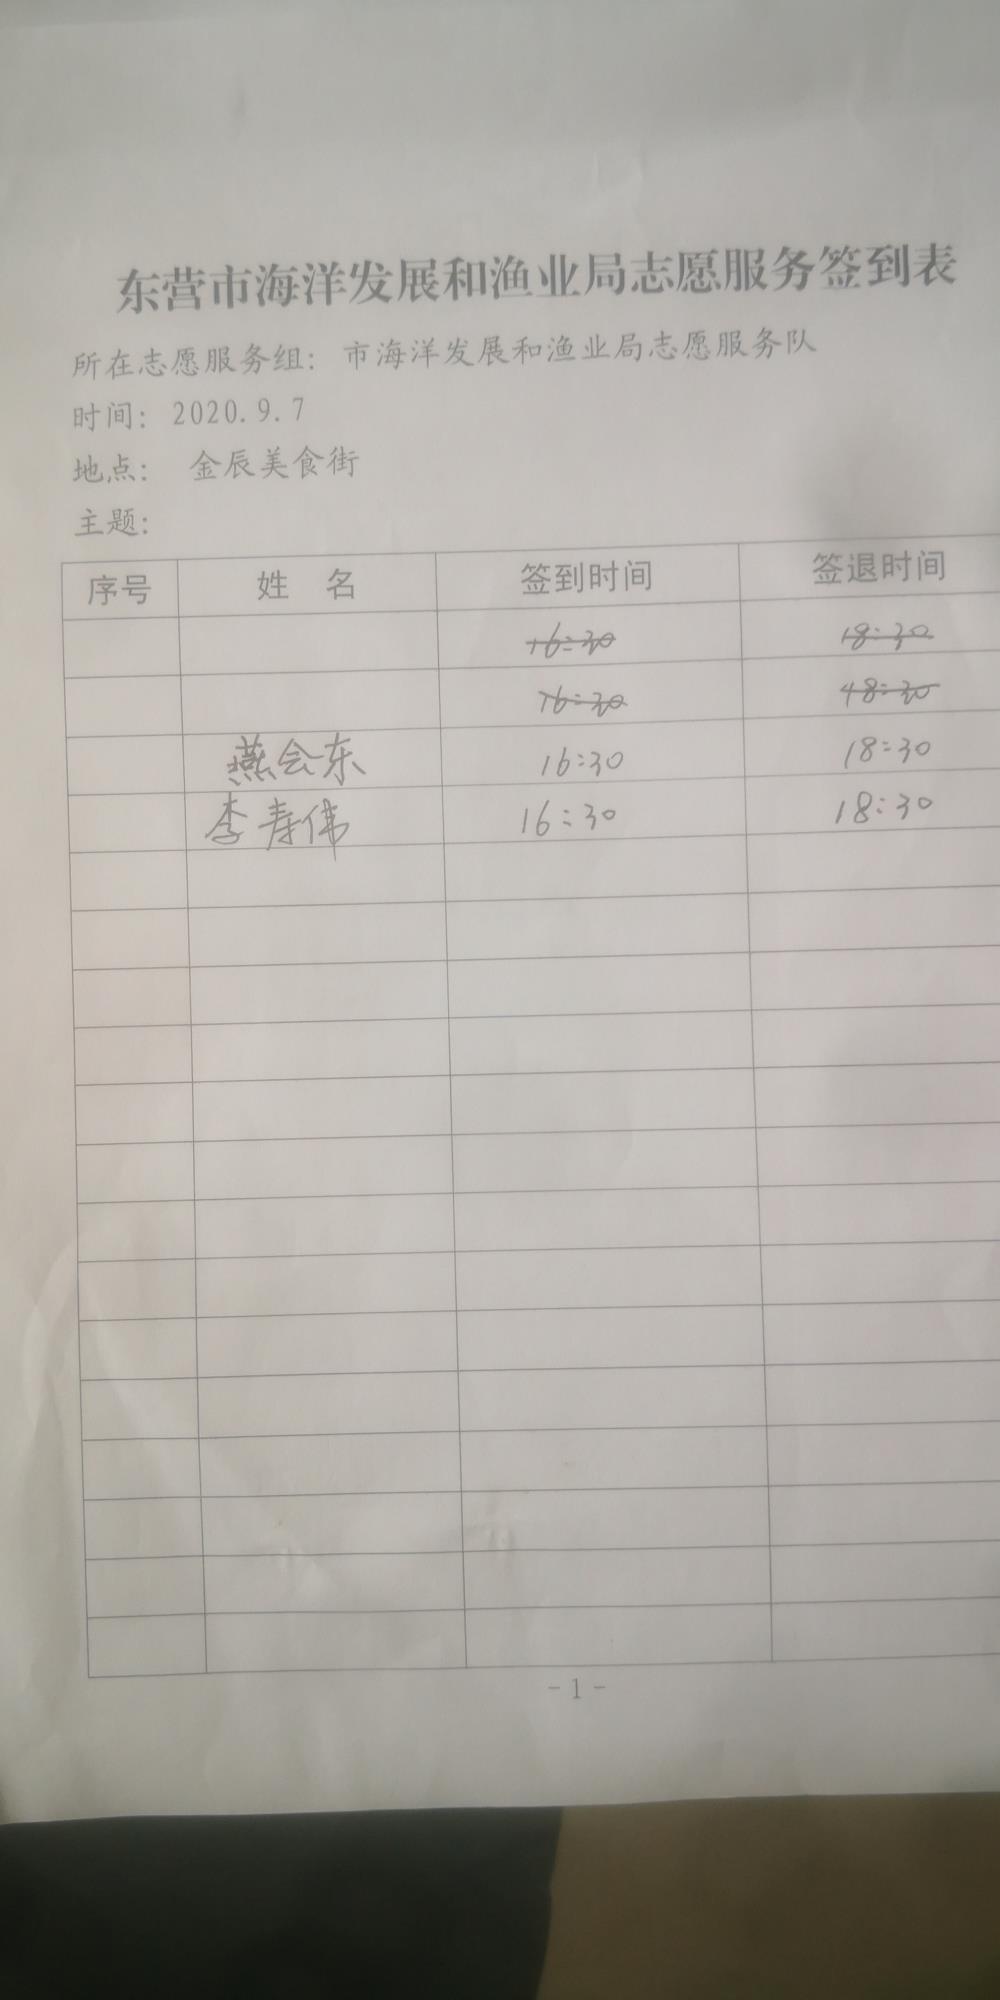 东营市海洋发展和渔业局志愿服务签到表
所在志愿服务组： 市海洋发展和渔业局志愿服务队
时间： 2020.9.7
地点： 金辰美食街
主题：
序号 姓 名 签到时间 签退时间
16:30 18:30
16:30 18:30
燕会东 16:30 18:30
李寿伟 16:30 18:30
-1-